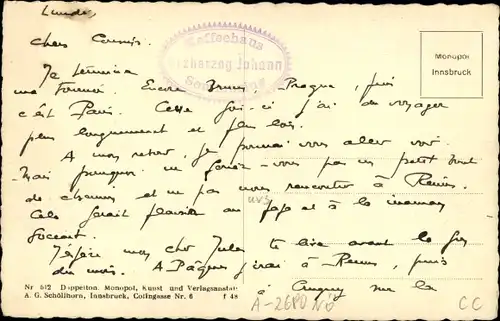 Lundi,
Kaffeehaus
Erzherzog Johann
Semmering
Monopol
Innsbruck
chers Cousins.
Je termine
ma Tournée. Encore Brunn, Prague, puis
c'est Paris. Cette fois-ci j'ai du voyager
plus longuement et plus loin.
A mon retour, je pourrai vous aller voir.
Mais pourquoi ne feriez-vous pas un petit bout
de chemin et ne pas nous rencontrer à Reims.
Cela ferait plaisir au et à la maman
J'espère mon cher Jules te lire avant la fin
du mois. A Pâques j'irai à Reims, puis
à sur la
Nr 512 Doppelton. Monopol, Kunst und Verlagsanstalt
A. G. Schöllhorn, Innsbruck, Colingasse Nr. 6 f 48
A-2680 NÖ
CC